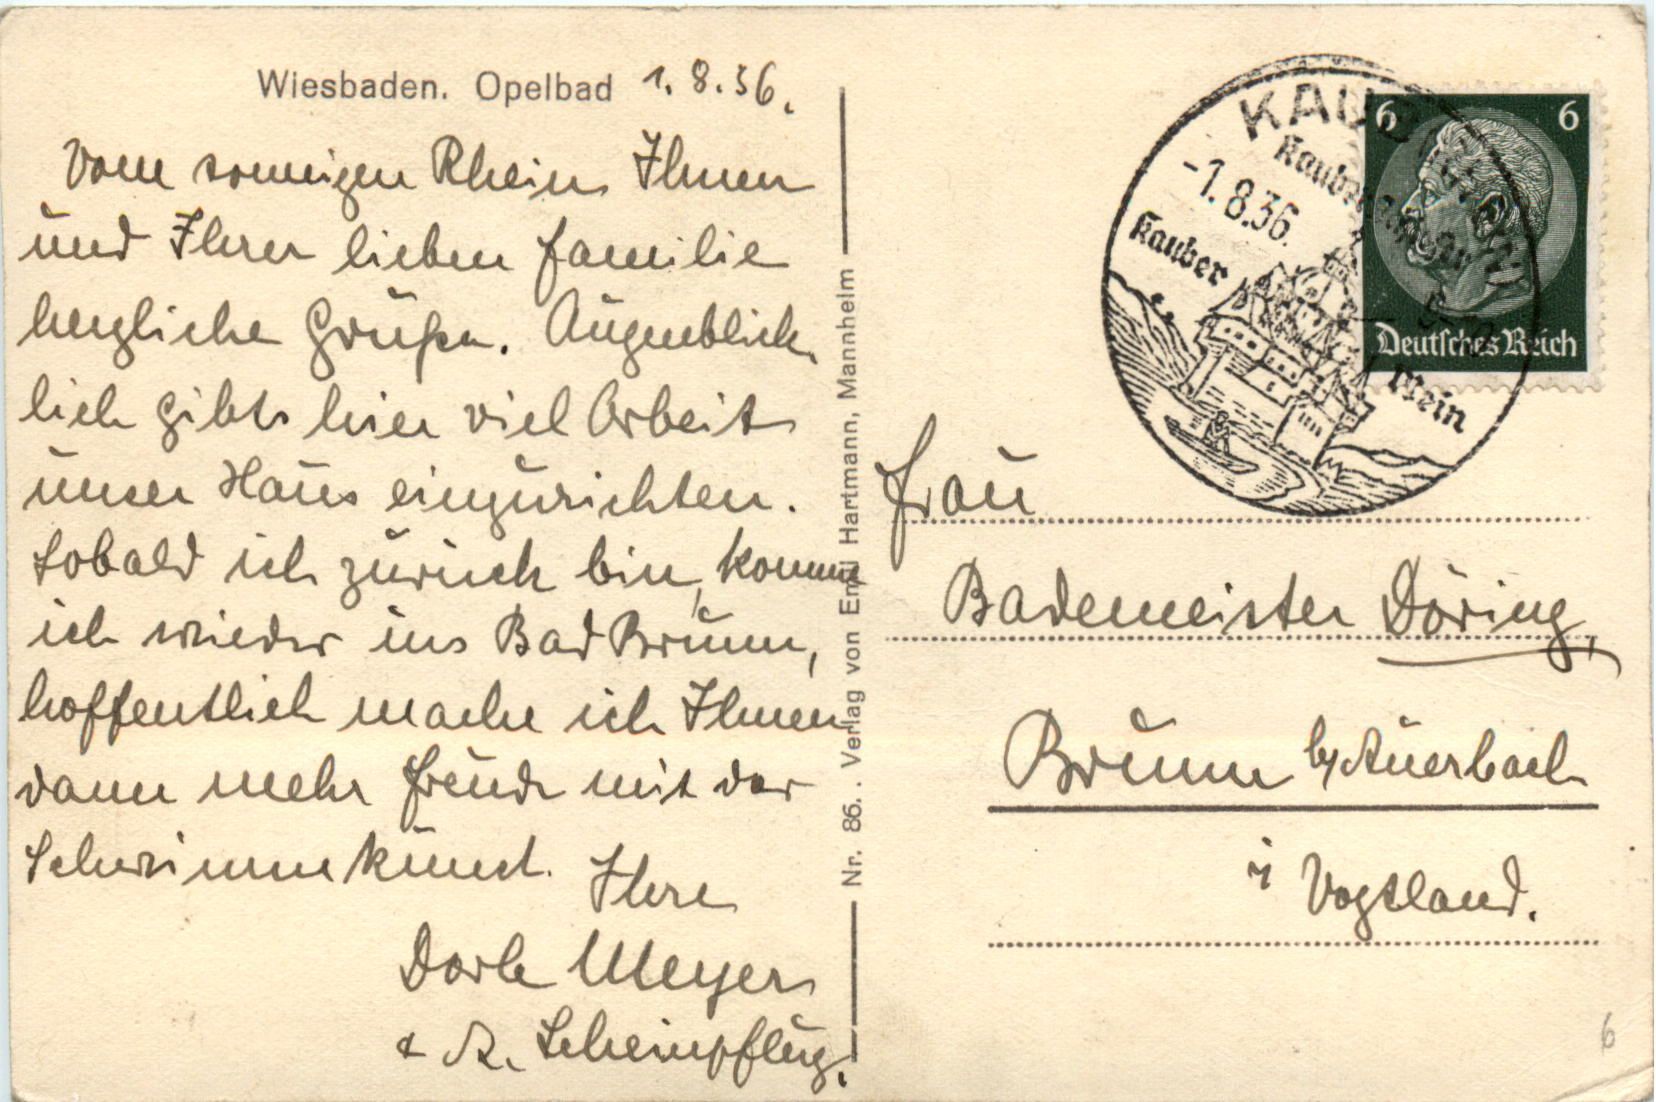 Wiesbaden. Opelbad 1.8.36.
Vom sonnigen Rhein Ihnen
und Ihrer lieben Familie
herzliche Grüße. Augenblick-
lich gibts hier viel Arbeit
unser Haus einzurichten.
Sobald ich zurück bin, komme
ich wieder ins Bad Brunn,
hoffentlich mache ich Ihnen
dann mehr Freude mit der
Schwimmkunst. Ihre
Dorle Meyer
& A. Scheinpflug.
Nr. 86. . Verlag von Emil Hartmann, Mannheim
KAUB
-1.8.36.
Kauber
Rhein
6 6
Deutsches Reich
Frau
Bademeister Döring,
Brunn b/Auerbach
i Vogtland.
6